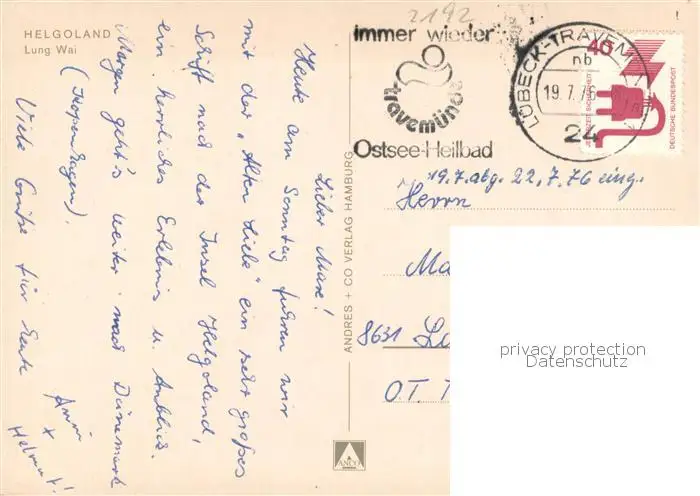 HELGOLAND
Lung Wai
Lieber Maxe!
Heute am Sonntag fuhren wir
mit der „Alten Liebe" ein sehr großes
Schiff nach der Insel Helgoland,
ein herrliches Erlebnis u. Anblick.
Morgen geht's weiter nach Dänemark
(Kopenhagen).
Viele Grüße für Euch
Anni
+
Helmut!
ANDRES + CO VERLAG HAMBURG
ANCO
2192
immer wieder
travemünde
Ostsee-Heilbad
LÜBECK-TRAVEM
nb
19.7.76
24
40
JEDERZEIT SICHERHEIT
DEUTSCHE BUNDESPOST
19.7. abg. 22.7.76 eing.
Herrn
Ma
8631
O.T. T
privacy protection
Datenschutz